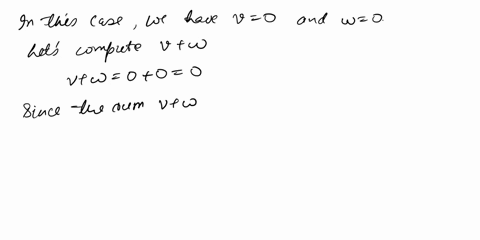 In this case, we have v=0 and w=0.
Let's compute v+w
v+w=0+0=0
Since the sum v+w